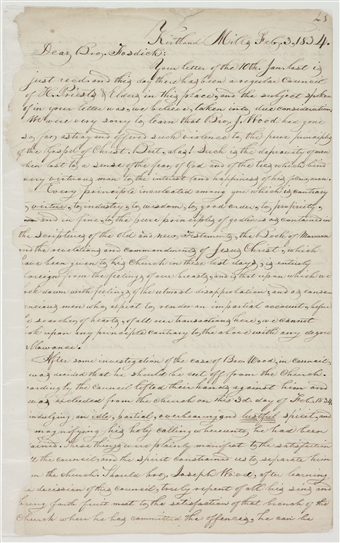 Kirtland Mills, Feb. 3, 1834.
Dear Bro. Fosdick:
Your letter of the 10th Jan. last is
just read, and this day there has been a regular Council
of H. Priests & Elders in this place, and the subject spoken
of in your letter was, we believe, taken into due consideration.
We were very sorry to learn that Bro. J. Wood had gone
so far astray and offered such violence to the pure principles
of the Gospel of Christ. But, such is the depravity of
man lost to a sense of the fear of God and of the ties which bind
every virtuous man to the interest and happiness of his fellow man.
Every principle inculcated among you which is contrary
to virtue, to industry, to wisdom, to good order, to propriety,
and in fine, to the pure principles of godliness as contained in
the scriptures of the Old and New Testaments, the Book of Mormon
and the revelations and commandments of Jesus Christ, which
have been given to his Church in these last days, is entirely
foreign from the feelings of our hearts, and is that upon which we
look down with feelings of the utmost disapprobation; and as conscientious
men who expect to render an impartial account before
the searcher of hearts, of all our transactions here, we cannot
look upon any principle contrary to the above with any degree
of allowance.
After some investigation of the case of Bro. Wood, in council
it was decided that he should be cut off from the Church.
Accordingly the Council lifted their hands against him and
he was excluded from the church on this 3d day of Feb. 1834
for indulging an idle, partial, overbearing and lustful spirit, and
not magnifying his holy calling whereunto he had been
ordained. These things were plainly manifest to the satisfaction
of the council, and the spirit constrained us to separate him
from the church. Should bro. Joseph Wood, after learning
the decision of this council, truly repent of all his sins and
bring forth fruit meet to the satisfaction of that branch of the
Church where he has committed the offences, he can be